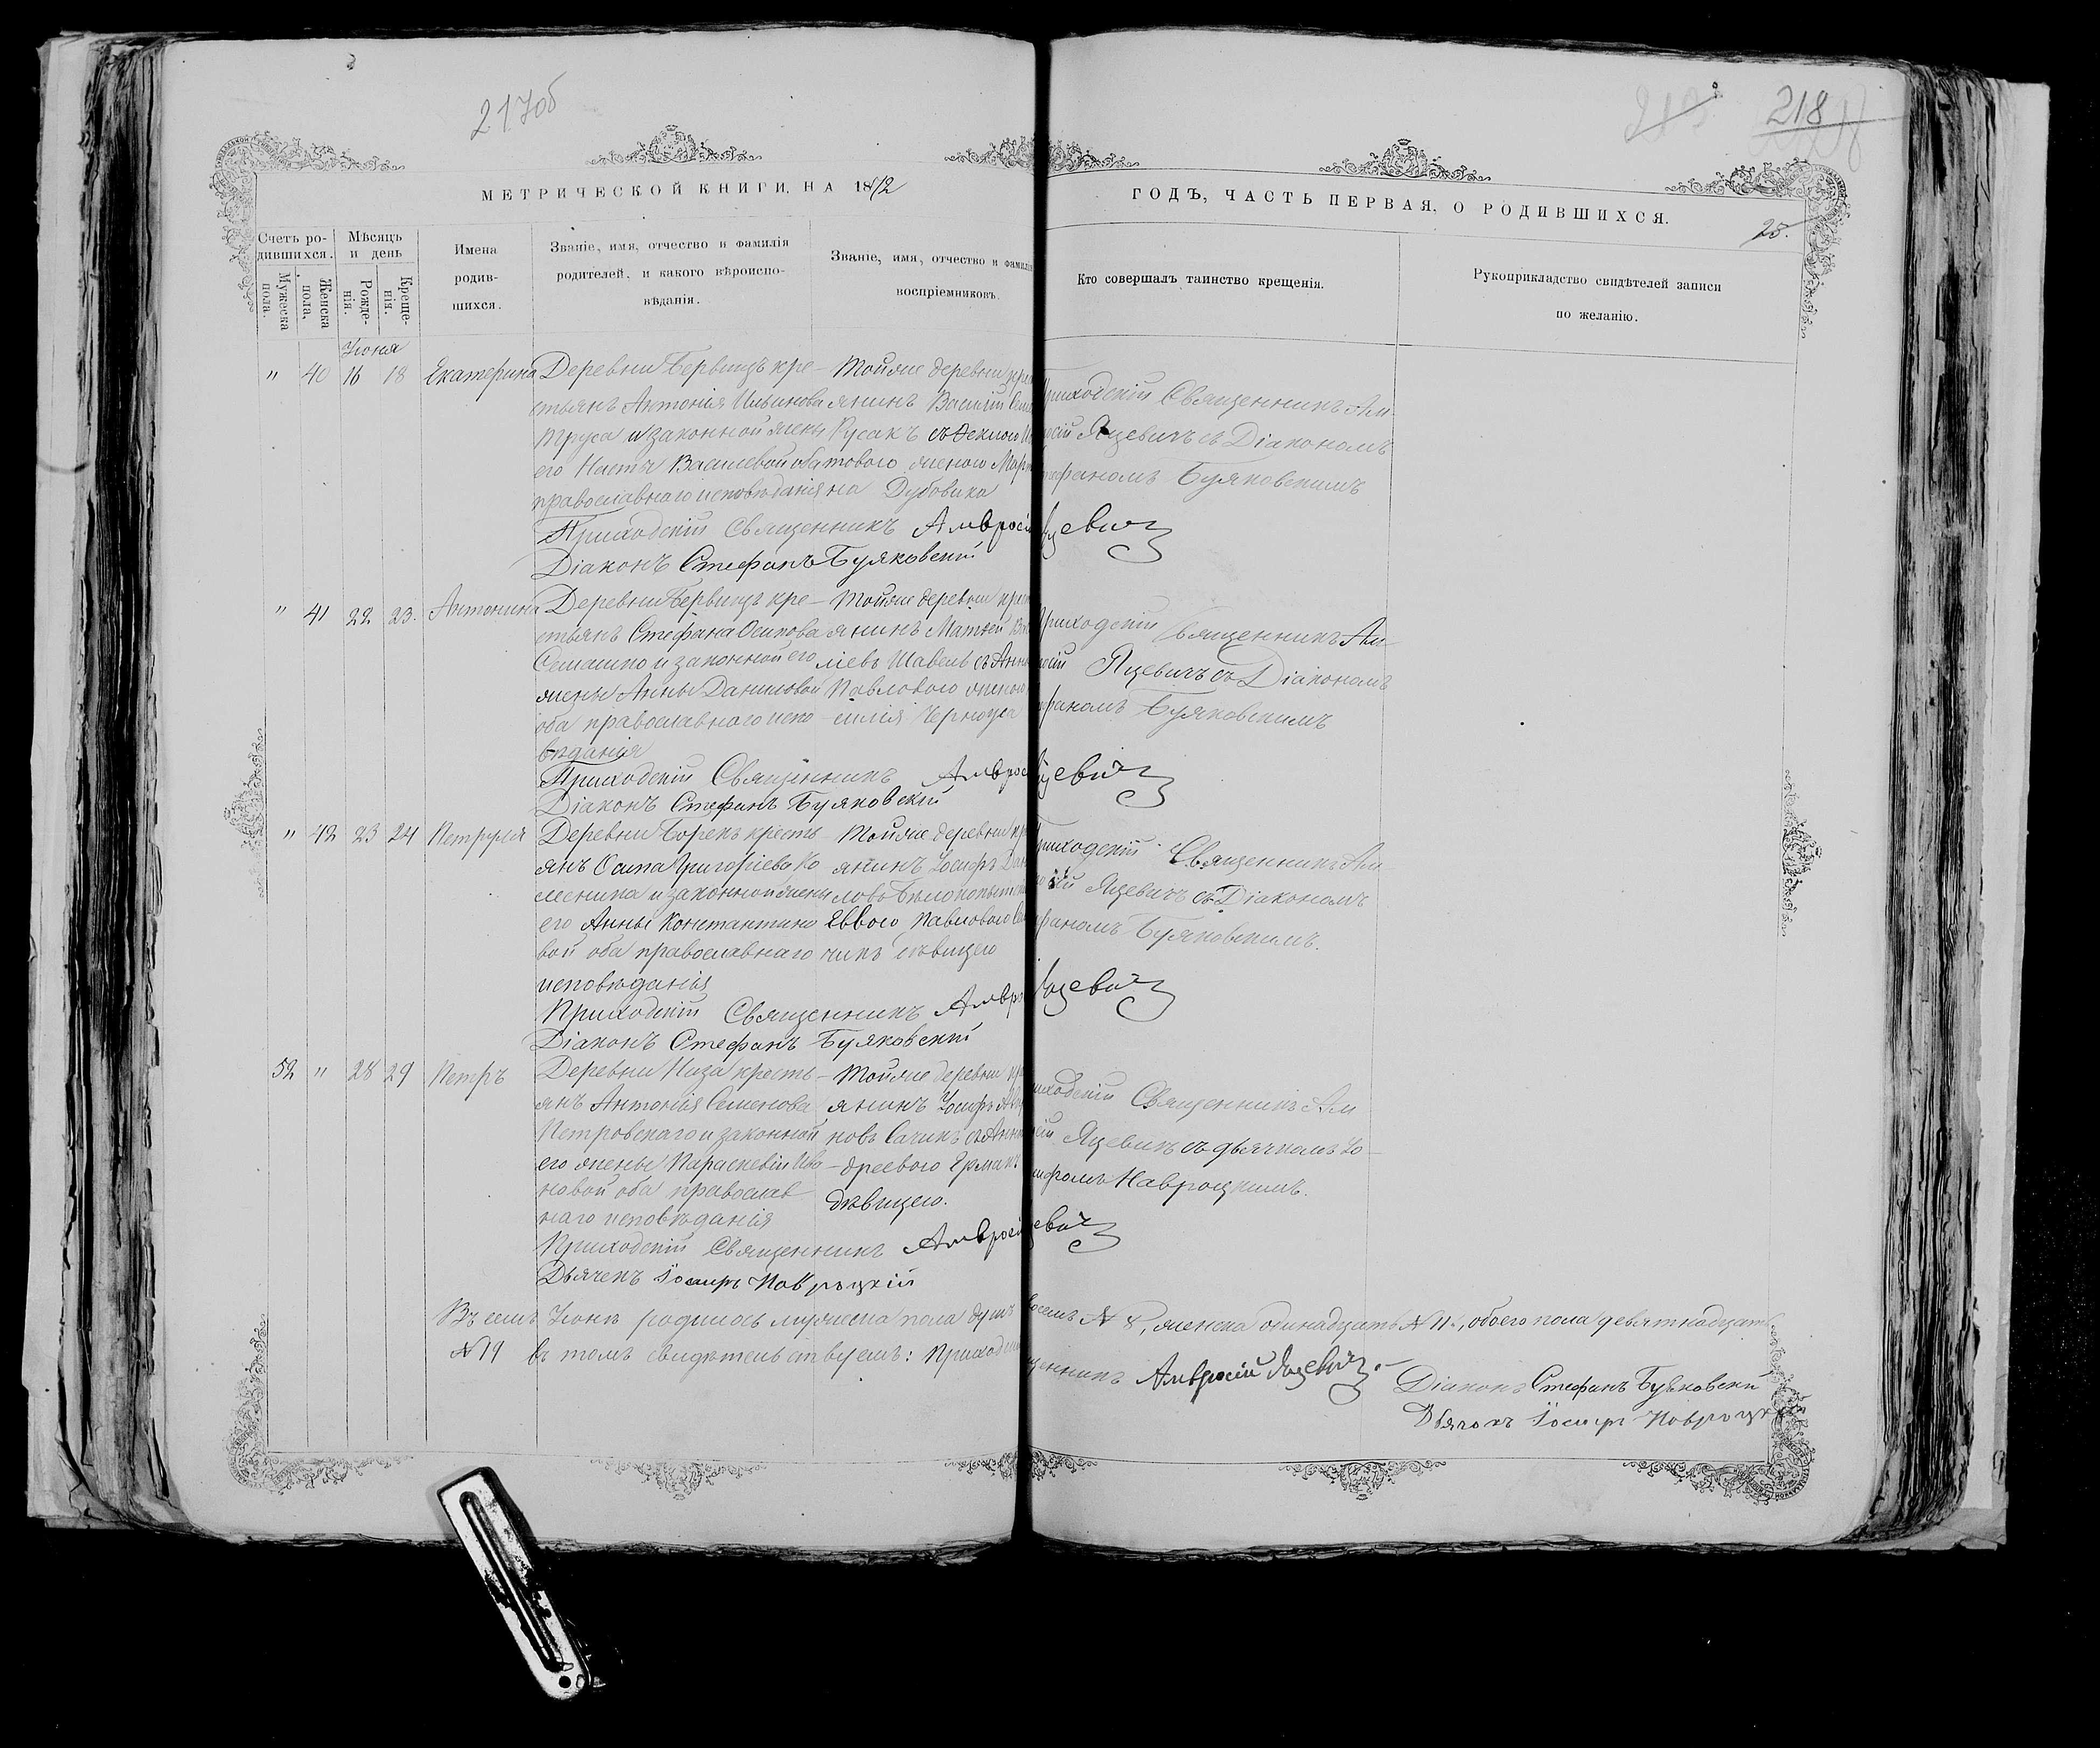 217об
218
МЕТРИЧЕСКОЙ КНИГИ, НА 1872
ГОДЪ, ЧАСТЬ ПЕРВАЯ, О РОДИВШИХСЯ.
25.
Счетъ ро-
дившихся.
Мужеска пола.
Женска пола.
Мѣсяцъ
и день
Рожде-
нія.
Креще-
нія.
Имена
родив-
шихся.
Званіе, имя, отчество и фамилія
родителей, и какого вѣроиспо-
вѣданія.
Званіе, имя, отчество и фамилія
воспріемниковъ.
Кто совершалъ таинство крещенія.
Рукоприкладство свидѣтелей записи
по желанію.
Іюня
" 40 16 18 Екатерина
Деревни Бервищъ кре-
стьянъ Антонія Иванова
Труса и законной жены
его Насты Василевой оба
православнаго исповѣданія
Тойже деревни
янинъ Василій
Русакъ съ Феклою
товаго женою
на Дубовика
Приходскій Священникъ Ам-
росій Яцевичъ съ Діакономъ
Стефаномъ Буяковскимъ
Приходскій Священникъ Амвросій Яцевичъ
Діаконъ Стефанъ Буяковскій
" 41 22 23. Антонина
Деревни Бервищъ кре-
стьянъ Стефана Осипова
Семашко и законной его
жены Анны Даниловой
оба православнаго испо-
вѣданія
Тойже деревни
янинъ Матѳей
ліевъ Шавель съ
Павловою женою
силія Черноуса
Приходскій Священникъ Ам-
росій Яцевичъ съ Діакономъ
фаномъ Буяковскимъ
Приходскій Священникъ Амвросій Яцевичъ
Діаконъ Стефанъ Буяковскій
" 42 23 24 Петруля
Деревни Борекъ кресть-
янъ Осипа Григоріева Ко
меника и законной жены
его Анны Константино
вой оба православнаго
исповѣданія
Тойже деревни
янинъ Іосифъ
ловъ
Еввою Павловою
чикъ дѣвицею
Приходскій Священникъ Ам
росій Яцевичъ съ Діакономъ
фаномъ Буяковскимъ.
Приходскій Священникъ Амвросій Яцевичъ
Діаконъ Стефанъ Буяковскій
52 " 28 29 Петръ
Деревни Низа кресть-
янъ Антонія Семенова
Петровскаго и законной
его жены Параскевіи Ива
новой оба православ
наго исповѣданія
Тойже деревни
янинъ Іосифъ
новъ Сачикъ съ
дреевою Ермакъ
дѣвицею.
Приходскій Священникъ Ам
росій Яцевичъ съ дьячкомъ Іо-
сифомъ Навроцкимъ.
Приходскій Священникъ Амвросій Яцевичъ
Дьячекъ Іосифъ Навроцкій
Въ семъ Іюнѣ родилось мужеска пола душъ восемь № 8, женска одинадцать № 11., обоего пола девятнадцать
№ 19 въ томъ свидѣтельствуемъ: Приходскій Священникъ Амвросій Яцевичъ
Діаконъ Стефанъ Буяковскій
Дьячокъ Іосифъ Навроцкій